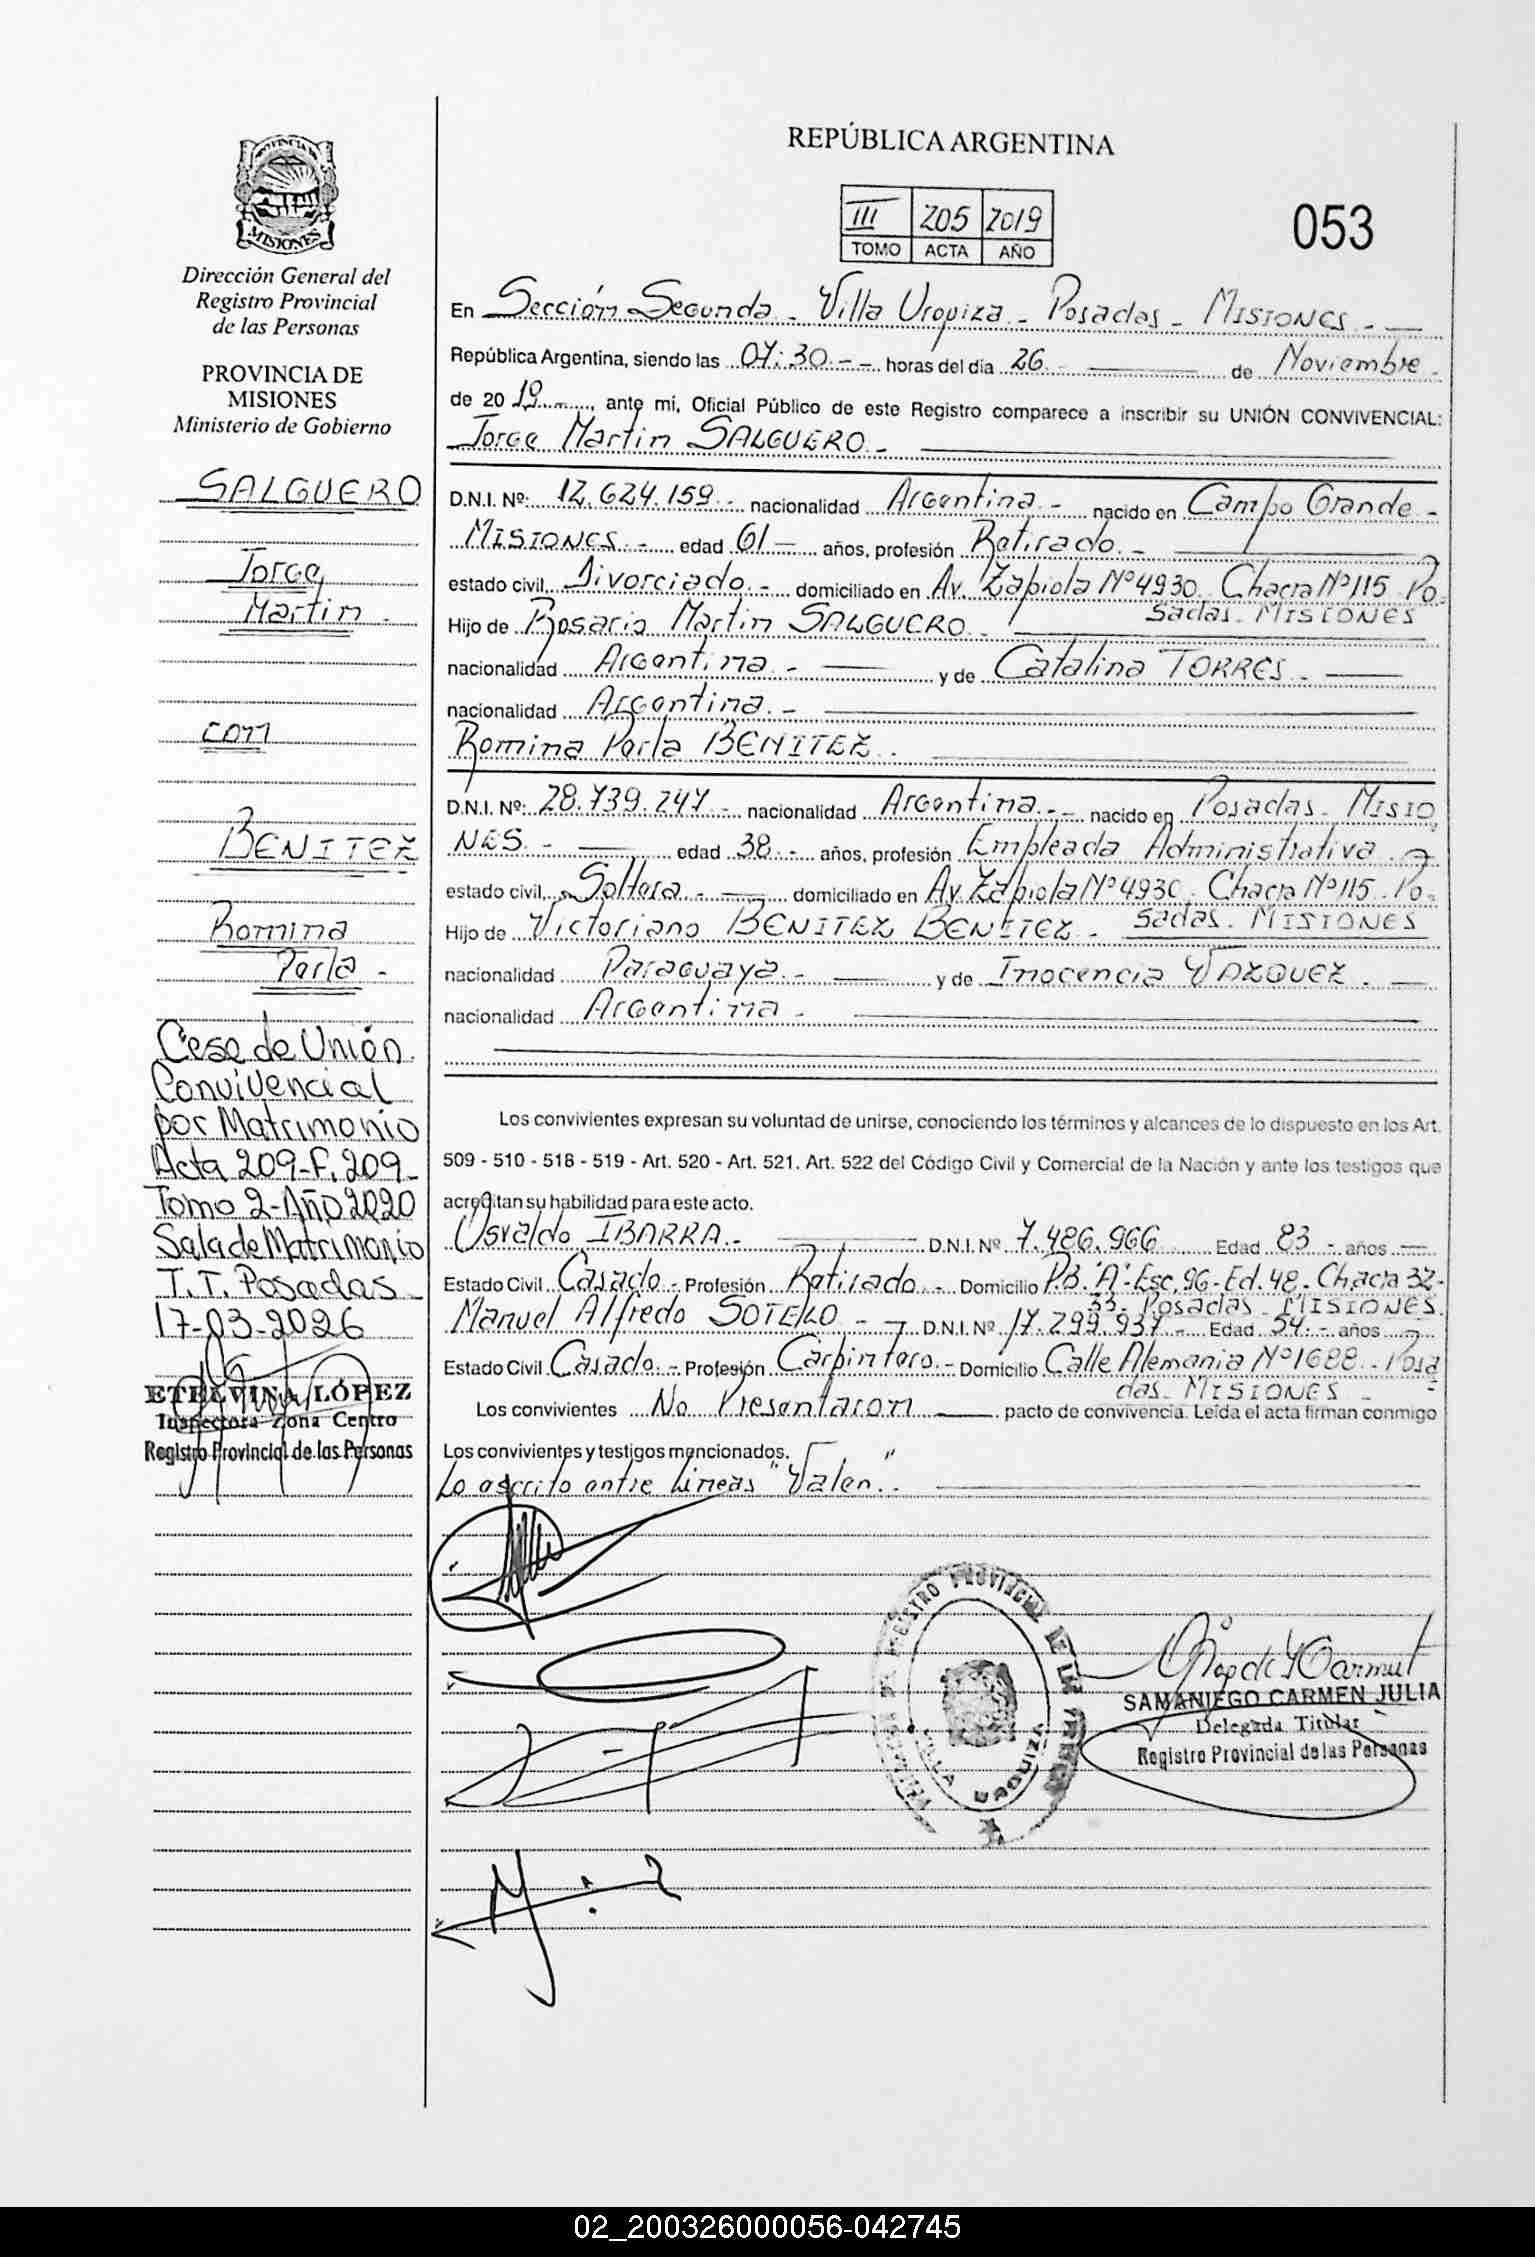 REPÚBLICA ARGENTINA
III 205 2019
TOMO ACTA AÑO
053
PROVINCIA DE
MISIONES
Dirección General del
Registro Provincial
de las Personas
PROVINCIA DE
MISIONES
Ministerio de Gobierno
SALGUERO
Jorge
Martin -
con
BENITEZ
Romina
Perla -
Cese de Unión
Convivencial
por Matrimonio
Acta 209-F. 209-
Tomo 2-Año 2020
Sala de Matrimonio
T.T. Posadas-
17-03-2026
ETELVINA LÓPEZ
Inspectora Zona Centro
Registro Provincial de las Personas
En Sección Segunda - Villa Urquiza - Posadas - MISIONES - —
República Argentina, siendo las 07:30 -- horas del día 26 - — de Noviembre -
de 20 19 -, ante mi, Oficial Público de este Registro comparece a inscribir su UNIÓN CONVIVENCIAL:
Jorge Martin SALGUERO -
D.N.I. Nº: 12.624.159 - nacionalidad Argentina - nacido en Campo Grande -
MISIONES - edad 61 — años, profesión Retirado -
estado civil, Divorciado - domiciliado en Av. Zapiola Nº 4930. Chacra Nº 115. Po
sadas. MISIONES
Hijo de Rosario Martin SALGUERO -
nacionalidad Argentina - — y de Catalina TORRES - —
nacionalidad Argentina -
Romina Perla BENITEZ -
D.N.I. Nº: 28.739.247 - nacionalidad Argentina - - nacido en Posadas - MISIO
NES - — edad 38 - años, profesión Empleada Administrativa -
estado civil, Soltera - — domiciliado en Av. Zapiola Nº 4930. Chacra Nº 115. Po-
sadas. MISIONES
Hijo de Victoriano BENITEZ BENITEZ -
nacionalidad Paraguaya - — y de Inocencia VAZQUEZ - —
nacionalidad Argentina -
Los convivientes expresan su voluntad de unirse, conociendo los términos y alcances de lo dispuesto en los Art.
509 - 510 - 518 - 519 - Art. 520 - Art. 521. Art. 522 del Código Civil y Comercial de la Nación y ante los testigos que
acreditan su habilidad para este acto.
Osvaldo IBARRA - — D.N.I. Nº 7.486.966 Edad 83 - años —
Estado Civil Casado - Profesión Retirado - Domicilio P.B. "A"- Esc. 96 - Ed. 48 - Chacra 32-
33. Posadas - MISIONES.
Manuel Alfredo SOTELO - — D.N.I. Nº 17.299.937 - Edad 54 - años
Estado Civil Casado - Profesión Carpintero - Domicilio Calle Alemania Nº 1688 - Posa
das. MISIONES -
Los convivientes No Presentaron — pacto de convivencia. Leída el acta firman conmigo
Los convivientes y testigos mencionados.
Lo escrito entre Lineas "Valen."
REGISTRO PROVINCIAL DE LAS PERSONAS
VILLA URQUIZA
SAMANIEGO CARMEN JULIA
Delegada Titular
Registro Provincial de las Personas
02_200326000056-042745